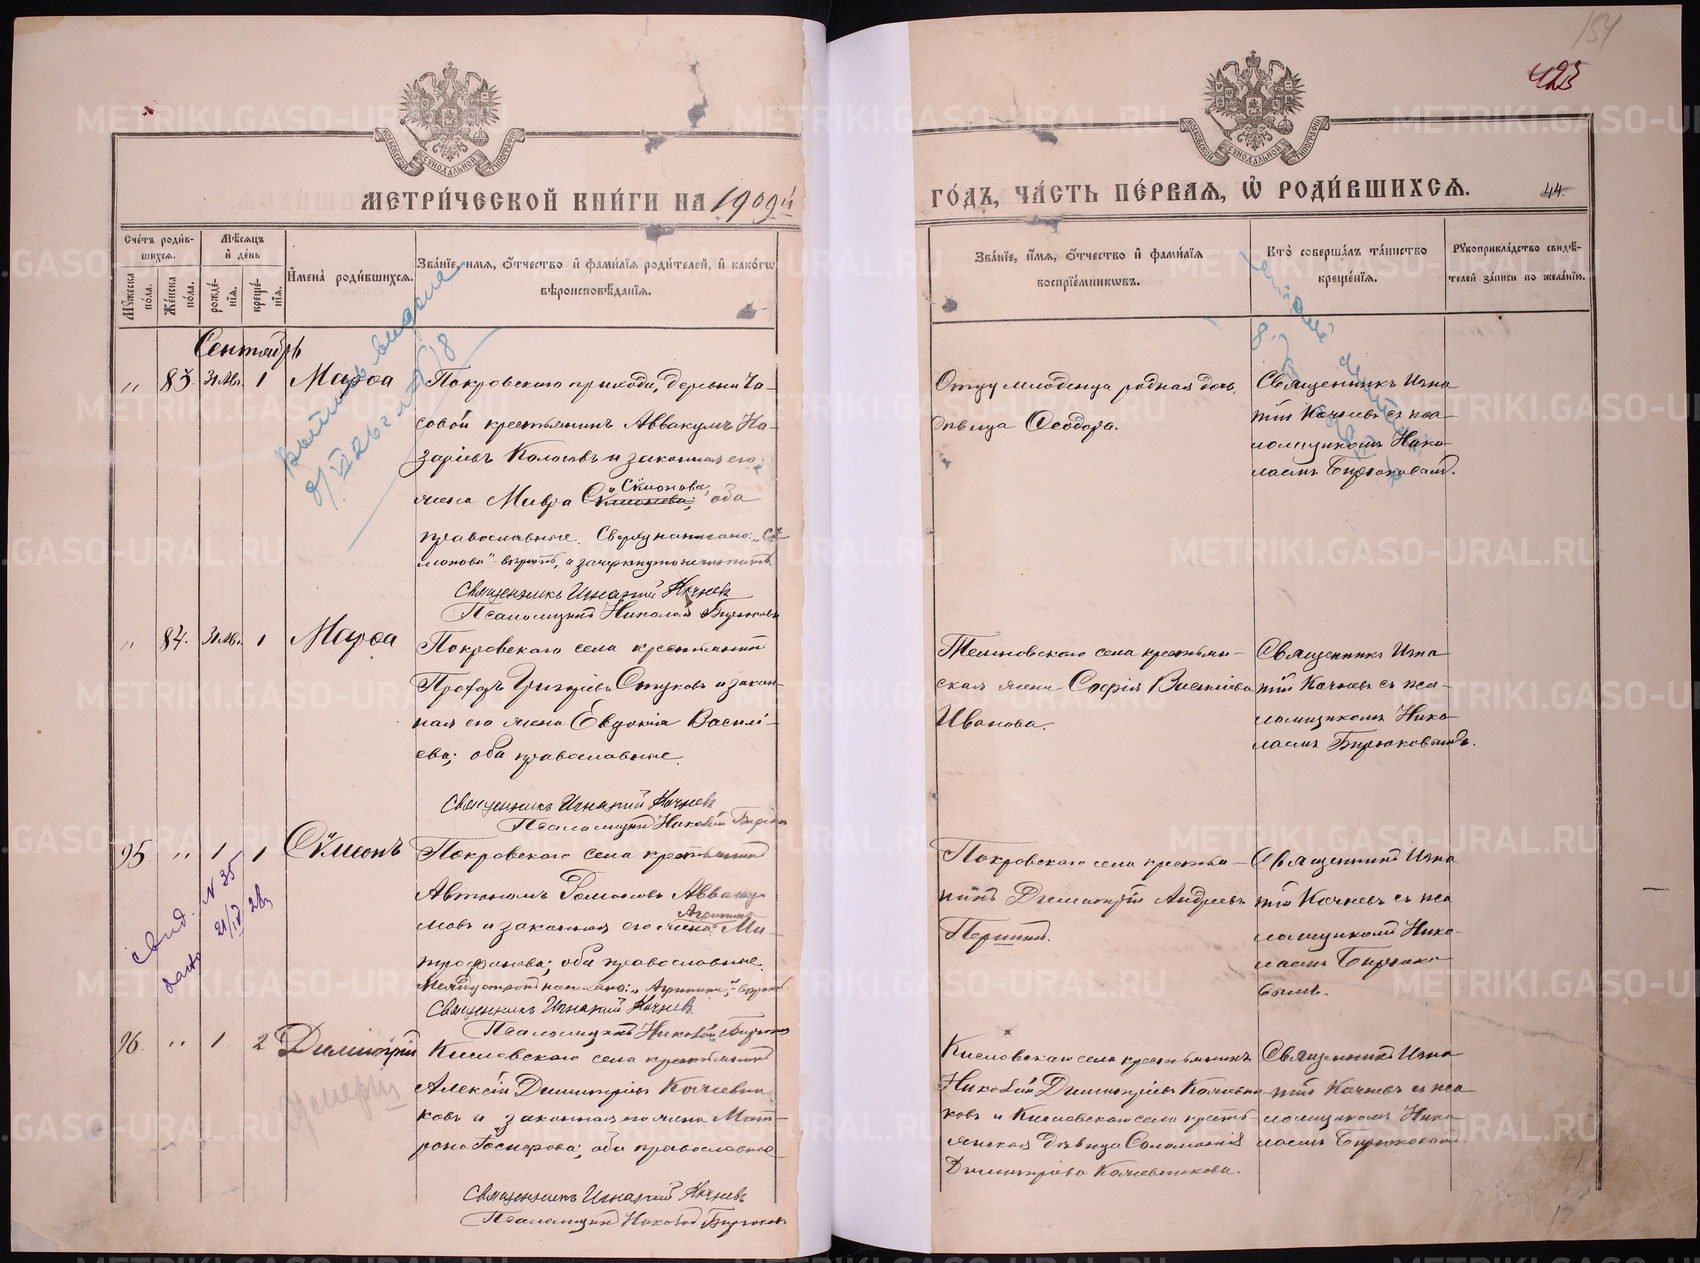 154
425
МЕТРИ́ЧЕСКОЙ КНИ́ГИ НА 1909й
ГО́ДЪ, ЧА́СТЬ ПЕ́РВАЯ, Ѽ РОДИ́ВШИХСЯ.
44.
Сче́тъ роди́в-
шихся.
Мѣ́сяцъ
и҆ де́нь
Мꙋжеска по́ла.
Же́нска по́ла.
рожде́-
нїя.
креще́-
нїя.
И҆мена̀ роди́вшихся.
Зва́нїе, и҆мя, ѻ҆́тчество и҆ фами́лїя роди́телей, и҆ како́гѡ
вѣроисповѣ́данїя.
Зва́нїе, и҆́мя, ѻ҆́тчество и҆ фами́лїя
воспрїе́мникѡвъ.
Кто̀ соверша́лъ та́инство
креще́нїя.
Рꙋкоприкла́дство свидѣ́-
телей за́писи по жела́нїю.
Сентябрь
" 83. 31 Авг. 1 Марѳа
Покровскаго прихода, деревни Ча-
совой крестьянинъ Аввакумъ На-
заріевъ Колосовъ и законная его
жена Мавра Сѷмонова; оба
православные. Сверху написано: "Сѷ-
монова" вѣрить, а зачеркнутое не читать
Священникъ Игнатій Качневъ
Псаломщикъ Николай Бирюковъ
Отцу младенца родная дочь,
дѣвица Ѳеодора.
Священникъ Игна-
тій Качневъ съ пса-
ломщикомъ Нико-
лаемъ Бирюковымъ.
" 84. 31 Авг. 1 Марѳа
Покровскаго села крестьянинъ
Григоріевъ и закон-
ная его жена Евдокія Василі-
ева; оба православные.
Священникъ Игнатій Качневъ
Псаломщикъ Николай Бирюков
села крестьян-
ская жена Софія
Иванова.
Священникъ Игна-
тій Качневъ съ пса-
ломщикомъ Нико-
лаемъ Бирюковымъ.
95 " 1 1 Сѷмеонъ
Покровскаго села крестьянинъ
Автономъ Аввакумовъ и законная его жена
Агриппина
Ми-
трофанова; оба православные.
Между строкъ написано: "Агриппина"
Священникъ Игнатій Качневъ
Псаломщикъ Николай Бирюков
свид. N 35
дано 21/IV 28г
Покровскаго села крестья-
нинъ Димитрій Андреевъ
Першинъ.
Священникъ Игна-
тій Качневъ съ пса-
ломщикомъ Нико-
лаемъ Бирюко-
вымъ.
96. " 1 2 Димитрій
умеръ
Кисловскаго села крестьянинъ
Алексій Димитріевъ Качевни-
ковъ и законная его жена Мат-
рона; оба православные
Священникъ Игнатій Качневъ
Псаломщикъ Николай Бирюковъ
Кисловскаго села крестьянинъ
Николай Димитріевъ Качевни-
ковъ и Кисловскаго села кресть-
янская дѣвица Соломонія
Димитріева Качевникова.
Священникъ Игна-
тій Качневъ съ пса-
ломщикомъ Нико-
лаемъ Бирюковымъ
METRIKI.GASO-URAL.RU